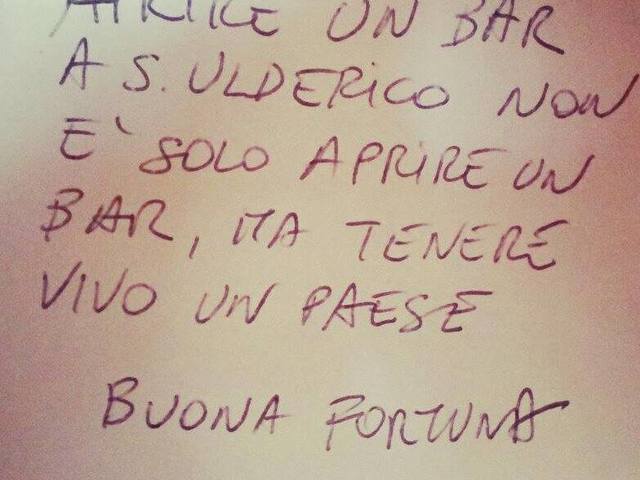 APRIRE UN BAR
A S. ULDERICO NON
E' SOLO APRIRE UN
BAR, MA TENERE
VIVO UN PAESE
BUONA FORTUNA